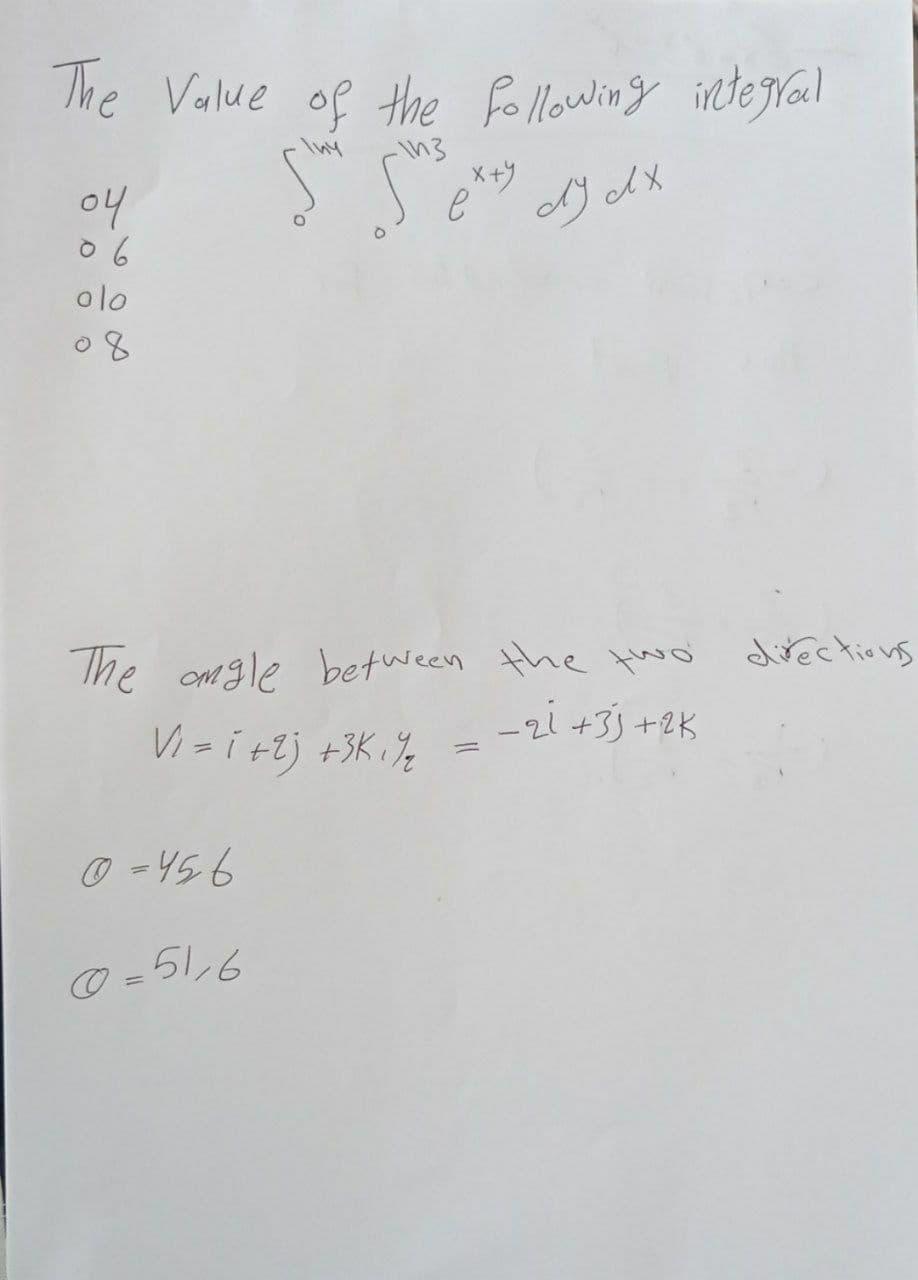 The Value of the following integral
∫₀^ln4 ∫₀^ln3 e^x+y dy dx
○ 4
○ 6
○ 10
○ 8
The angle between the two directions
V₁ = i + 2j + 3k, V₂ = -2i + 3j + 2k
θ = 45,6
θ = 51,6